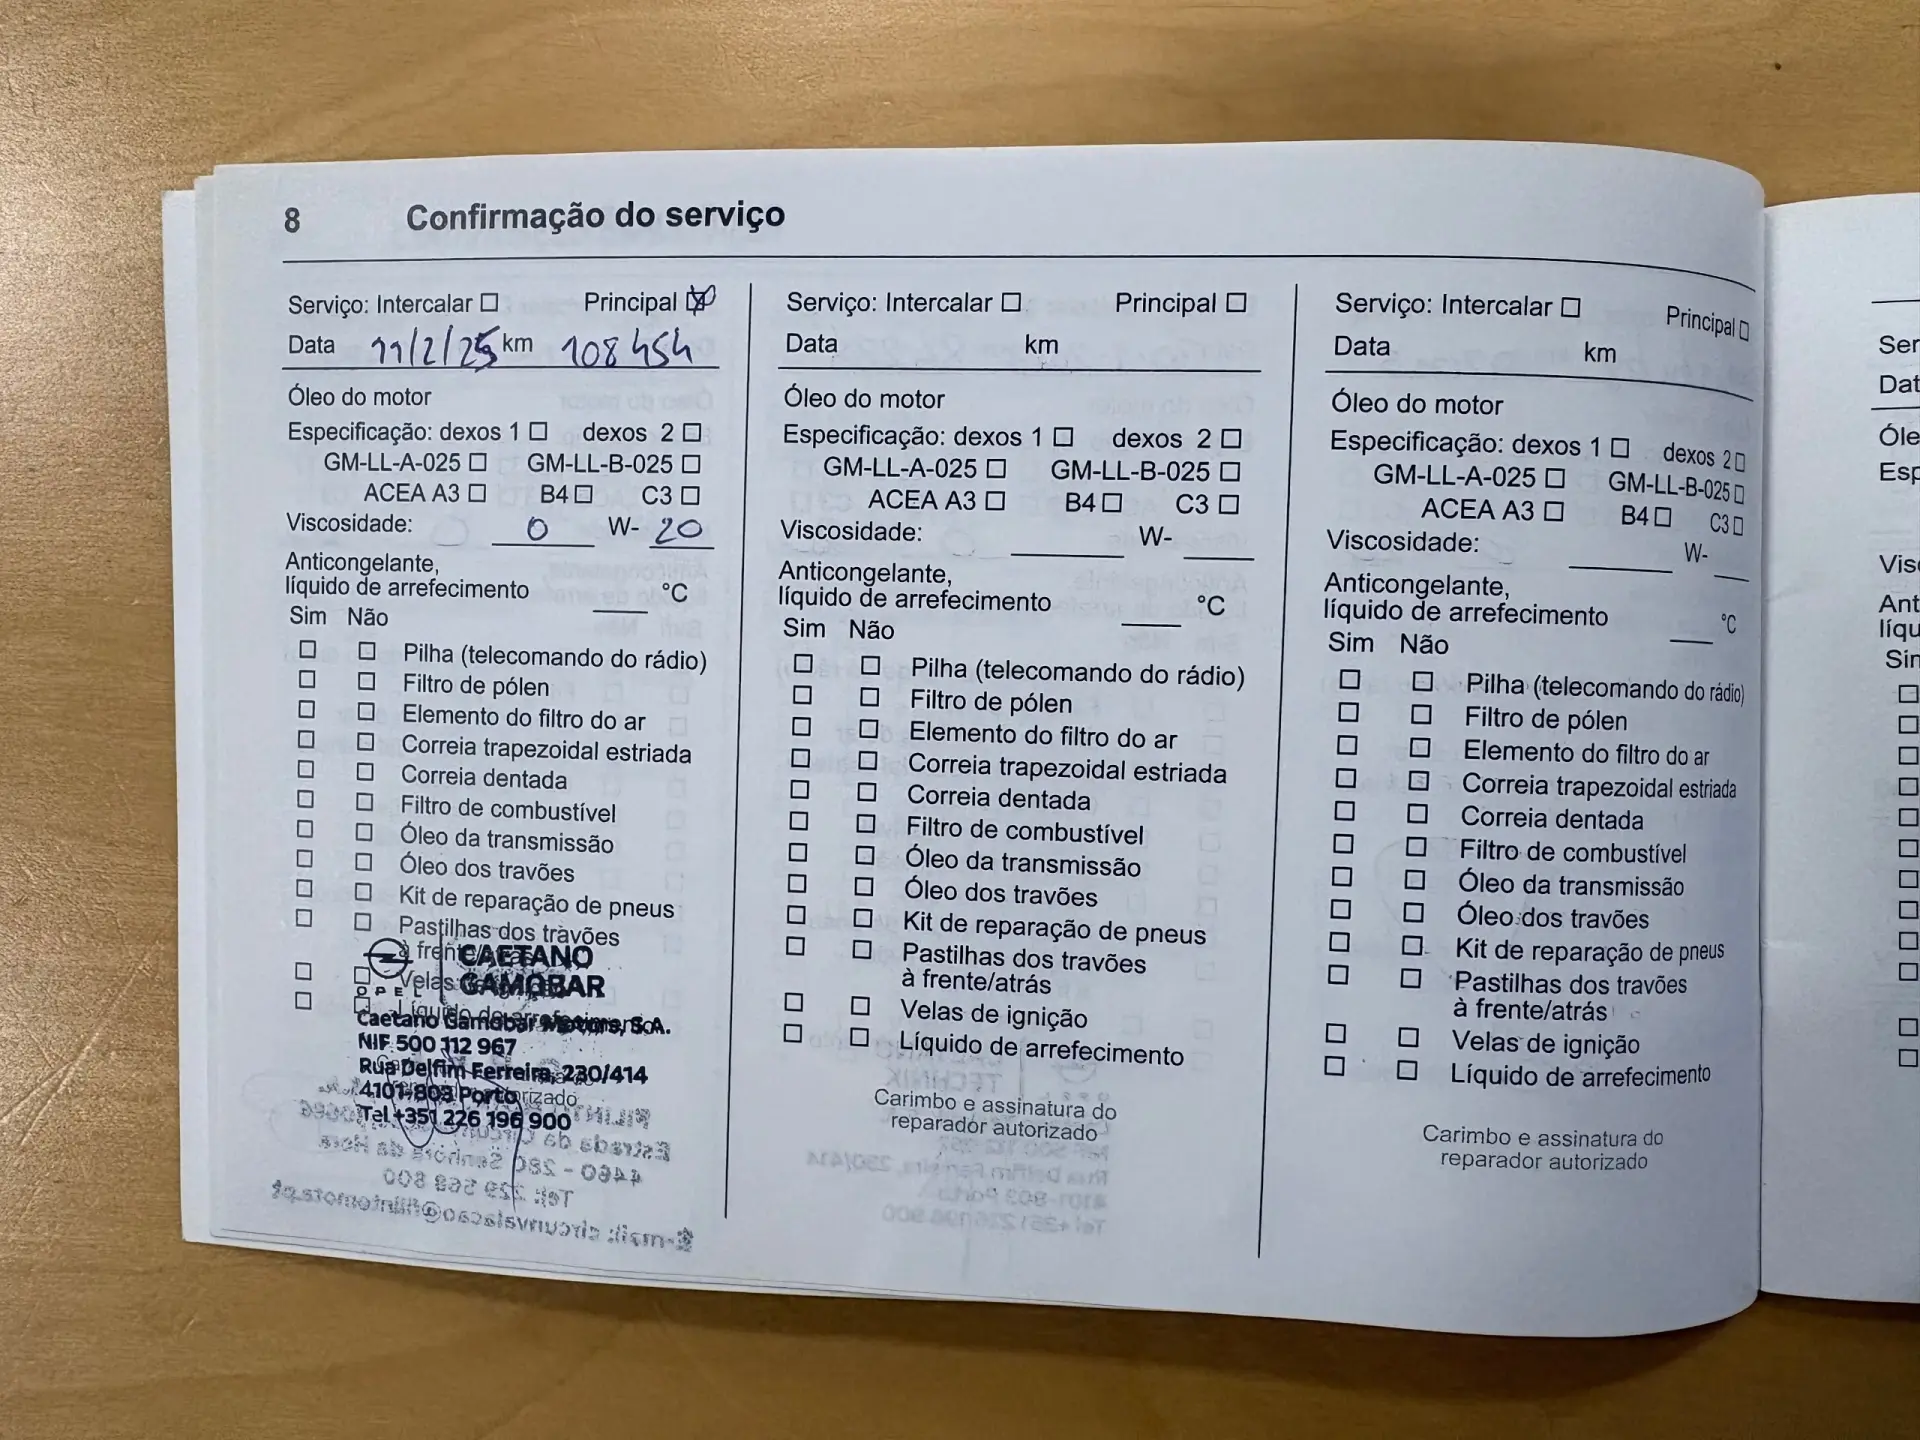 8 Confirmação do serviço
Serviço: Intercalar ☐ Principal ☒
Data 11/2/25 km 108454
Óleo do motor
Especificação: dexos 1 ☐ dexos 2 ☐
GM-LL-A-025 ☐ GM-LL-B-025 ☐
ACEA A3 ☐ B4 ☐ C3 ☐
Viscosidade: 0 W- 20
Anticongelante,
líquido de arrefecimento ____ °C
Sim Não
☐ ☐ Pilha (telecomando do rádio)
☐ ☐ Filtro de pólen
☐ ☐ Elemento do filtro do ar
☐ ☐ Correia trapezoidal estriada
☐ ☐ Correia dentada
☐ ☐ Filtro de combustível
☐ ☐ Óleo da transmissão
☐ ☐ Óleo dos travões
☐ ☐ Kit de reparação de pneus
☐ ☐ Pastilhas dos travões
à frente/atrás
☐ ☐ Velas
☐ ☐ Líquido de arrefecimento
OPEL
CAETANO
GAMOBAR
Caetano Gamobar Motors, S.A.
NIF 500 112 967
Rua Delfim Ferreira, 230/414
4101-803 Porto
Tel +351 226 196 900
Serviço: Intercalar ☐ Principal ☐
Data km
Óleo do motor
Especificação: dexos 1 ☐ dexos 2 ☐
GM-LL-A-025 ☐ GM-LL-B-025 ☐
ACEA A3 ☐ B4 ☐ C3 ☐
Viscosidade: ____ W- ____
Anticongelante,
líquido de arrefecimento ____ °C
Sim Não
☐ ☐ Pilha (telecomando do rádio)
☐ ☐ Filtro de pólen
☐ ☐ Elemento do filtro do ar
☐ ☐ Correia trapezoidal estriada
☐ ☐ Correia dentada
☐ ☐ Filtro de combustível
☐ ☐ Óleo da transmissão
☐ ☐ Óleo dos travões
☐ ☐ Kit de reparação de pneus
☐ ☐ Pastilhas dos travões
à frente/atrás
☐ ☐ Velas de ignição
☐ ☐ Líquido de arrefecimento
Carimbo e assinatura do
reparador autorizado
Serviço: Intercalar ☐ Principal ☐
Data km
Óleo do motor
Especificação: dexos 1 ☐ dexos 2 ☐
GM-LL-A-025 ☐ GM-LL-B-025 ☐
ACEA A3 ☐ B4 ☐ C3 ☐
Viscosidade: ____ W- ____
Anticongelante,
líquido de arrefecimento ____ °C
Sim Não
☐ ☐ Pilha (telecomando do rádio)
☐ ☐ Filtro de pólen
☐ ☐ Elemento do filtro do ar
☐ ☐ Correia trapezoidal estriada
☐ ☐ Correia dentada
☐ ☐ Filtro de combustível
☐ ☐ Óleo da transmissão
☐ ☐ Óleo dos travões
☐ ☐ Kit de reparação de pneus
☐ ☐ Pastilhas dos travões
à frente/atrás
☐ ☐ Velas de ignição
☐ ☐ Líquido de arrefecimento
Carimbo e assinatura do
reparador autorizado